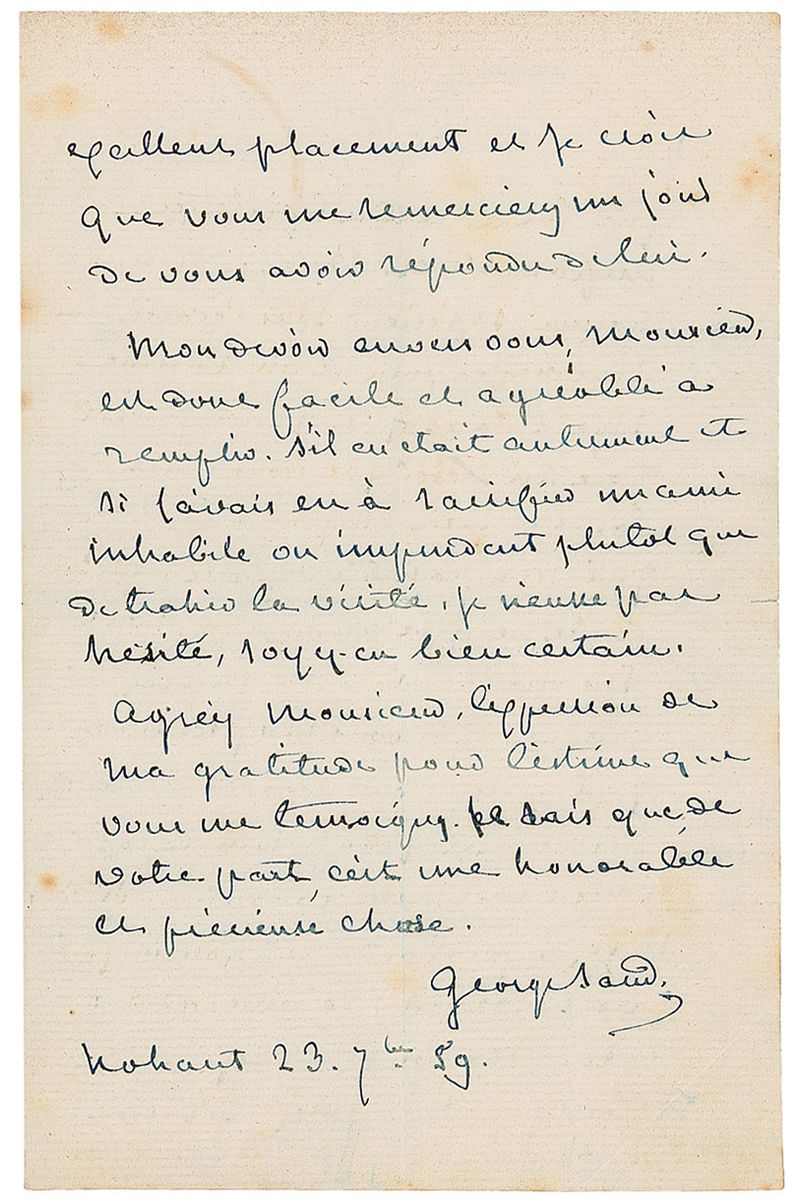 excellent placement et je crois
que vous me remercierez un jour
de vous avoir répondu de lui.
Mon devoir envers vous, Monsieur,
est donc facile et agréable à
remplir. S'il en était autrement et
si j'avais eu à sacrifier un ami
inhabile ou imprudent plutôt que
de trahir la vérité, je n'eusse pas
hésité, soyez-en bien certain.
Agréez Monsieur, l'expression de
ma gratitude pour l'estime que
vous me témoignez. Je sais que de
votre part, c'est une honorable
et précieuse chose.
George Sand.
Nohant 23. 7bre 59.